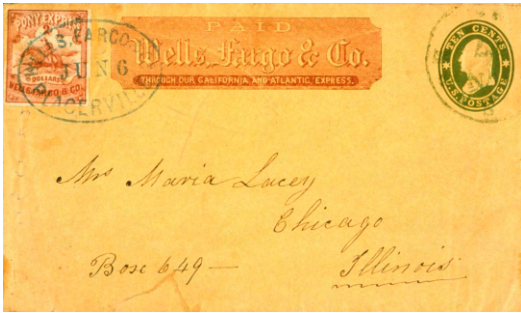 PONY EXPRESS
DOLLARS
WELLS FARGO & CO.
WELLS, FARGO
JUN 6
PLACERVILLE
PAID
Wells, Fargo & Co.
THROUGH OUR CALIFORNIA AND ATLANTIC EXPRESS.
TEN CENTS
U.S. POSTAGE
Mrs Maria Lacey
Chicago
Box 649 — Illinois.